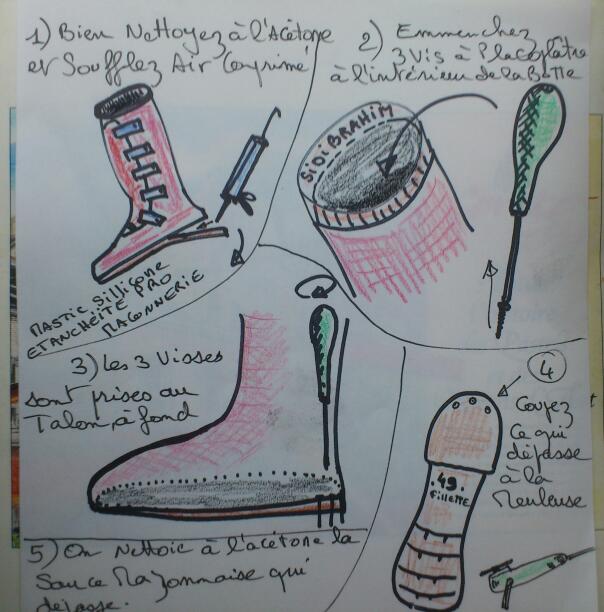 1) Bien Nettoyez à l'Acétone
et Soufflez Air Comprimé
MASTIC SILLICONE
ETANCHEITE PRO
MACONNERIE
2) Emmenchez
3 Vis à Placoplatre
à l'intérieur de la Botte
SIDI BRAHIM
3) les 3 Visses
sont prises au
Talon, à fond
4
Coupez
Ce qui
dépasse
à la
Meuleuse
49.
fillette
5) On Nettoie à l'acétone la
Sauce Mayonnaise qui
dépasse.